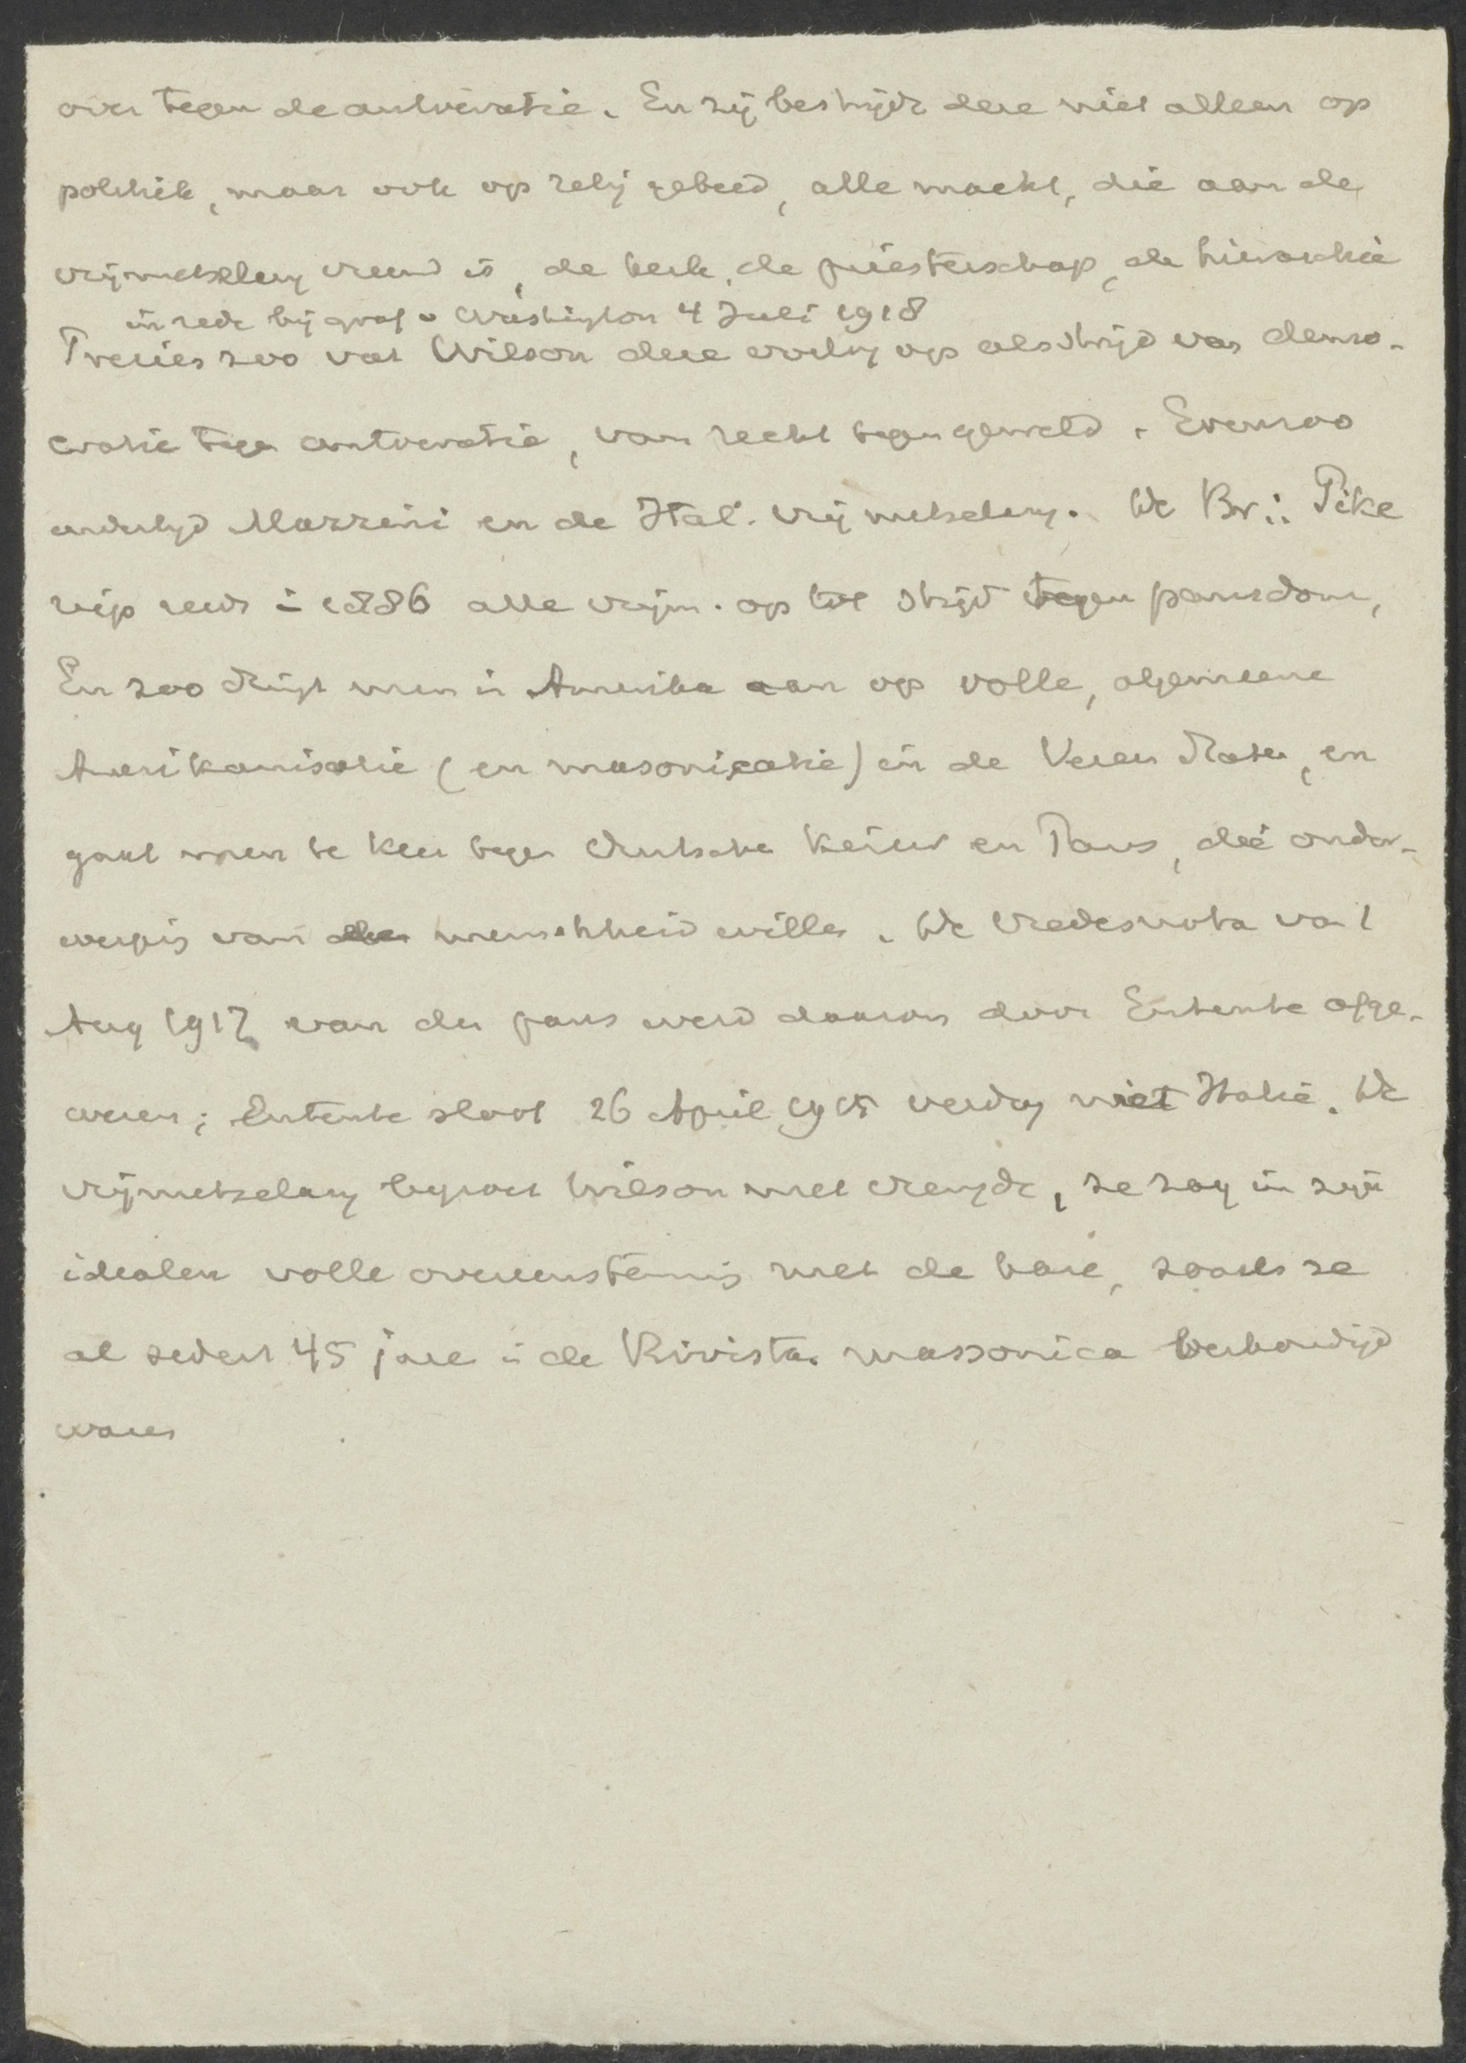 over tegen de autocratie. En zij bestrijdt deze niet alleen op
politiek, maar ook op relig gebied, alle macht, die aan de
vrijmetselary vreemd is, de kerk, de priesterschap, de hierarchie
in rede bij graf v Washington 4 Juli 1918
Precies zoo vat Wilson deze oorlog op als strijd van demo-
cratie tegen autocratie, van recht tegen geweld. Evenzoo
indertijd Mazzini en de Ital. vrijmetselary. De Br∴ Pike
riep reeds in 1886 alle vrijm. op tot strijd tegen pausdom,
En zoo dringt men in Amerika aan op volle, algemeene
Amerikanisatie (en masonicatie) in de Veren Staten, en
gaat men te keer tegen Duitsche Keizer en Paus, die onder-
werping van de menschheid willen. De Vredesnota van 1
Aug 1917 van den paus werd daarom door Entente afge-
wezen; Entente sloot 26 April 1915 verdrag met Italië. De
vrijmetselary begroet Wilson met vreugde, ze zag in zijn
idealen volle overeenstemming met de hare, zooals ze
al sedert 45 jare in de Rivista massonica verkondigd
waren